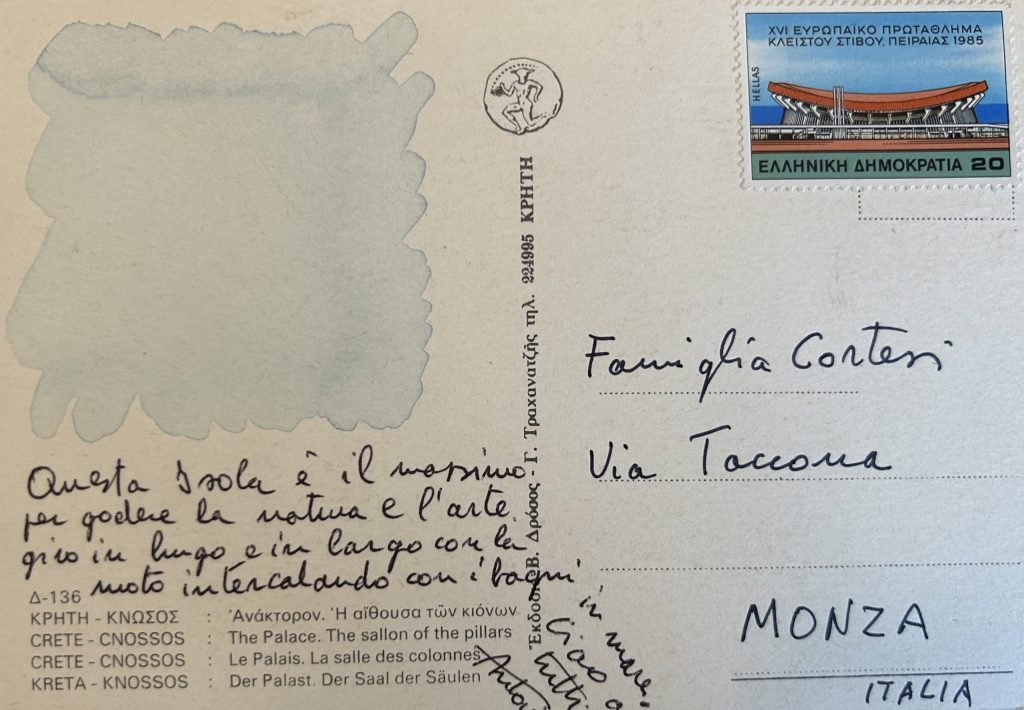 XVI ΕΥΡΩΠΑΪΚΟ ΠΡΩΤΑΘΛΗΜΑ
ΚΛΕΙΣΤΟΥ ΣΤΙΒΟΥ, ΠΕΙΡΑΙΑΣ 1985
HELLAS
ΕΛΛΗΝΙΚΗ ΔΗΜΟΚΡΑΤΙΑ 20
Questa Isola è il massimo
per godere la natura e l'arte
giro in lungo e in largo con la
moto intercalando con i bagni
in mare.
Ciao a
tutti
Δ-136
ΚΡΗΤΗ - ΚΝΩΣΟΣ : Ἀνάκτορον. Ἡ αἴθουσα τῶν κιόνων
CRETE - CNOSSOS : The Palace. The sallon of the pillars
CRETE - CNOSSOS : Le Palais. La salle des colonnes
KRETA - KNOSSOS : Der Palast. Der Saal der Säulen
Ἐκδοσις Β. Δρόσος - Γ. Τραχανατζῆς τηλ. 224995 ΚΡΗΤΗ
Famiglia Cortesi
Via Taccona
MONZA
ITALIA